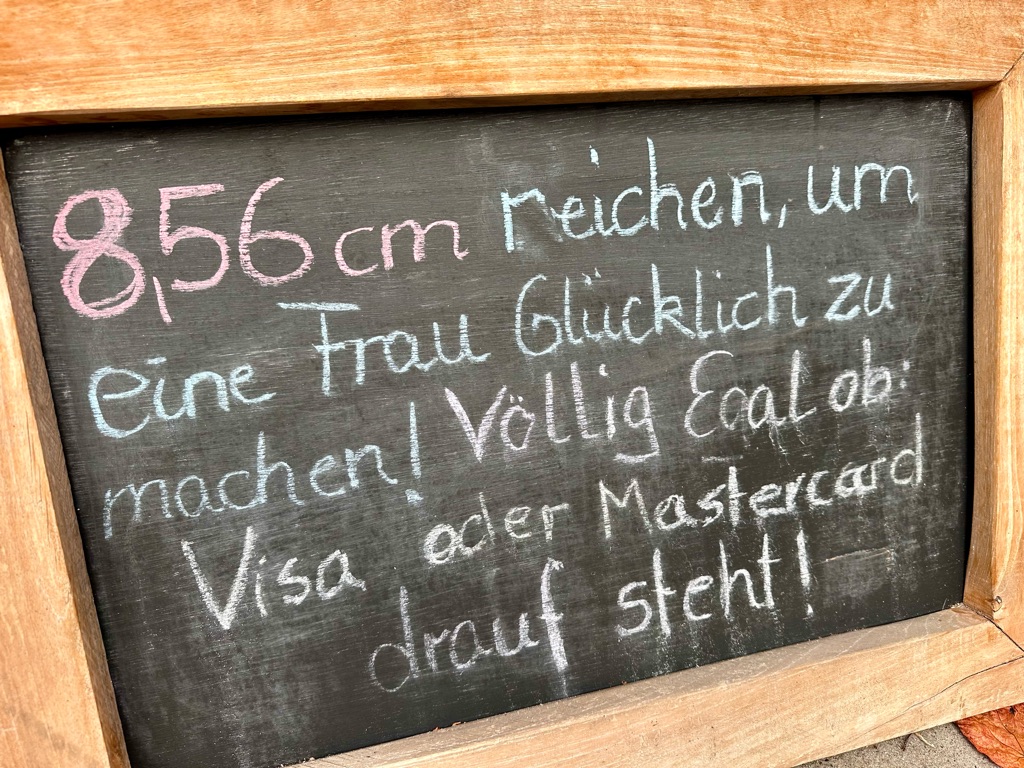 8,56 cm reichen, um
eine Frau Glücklich zu
machen! Völlig Egal ob:
Visa oder Mastercard
drauf steht!